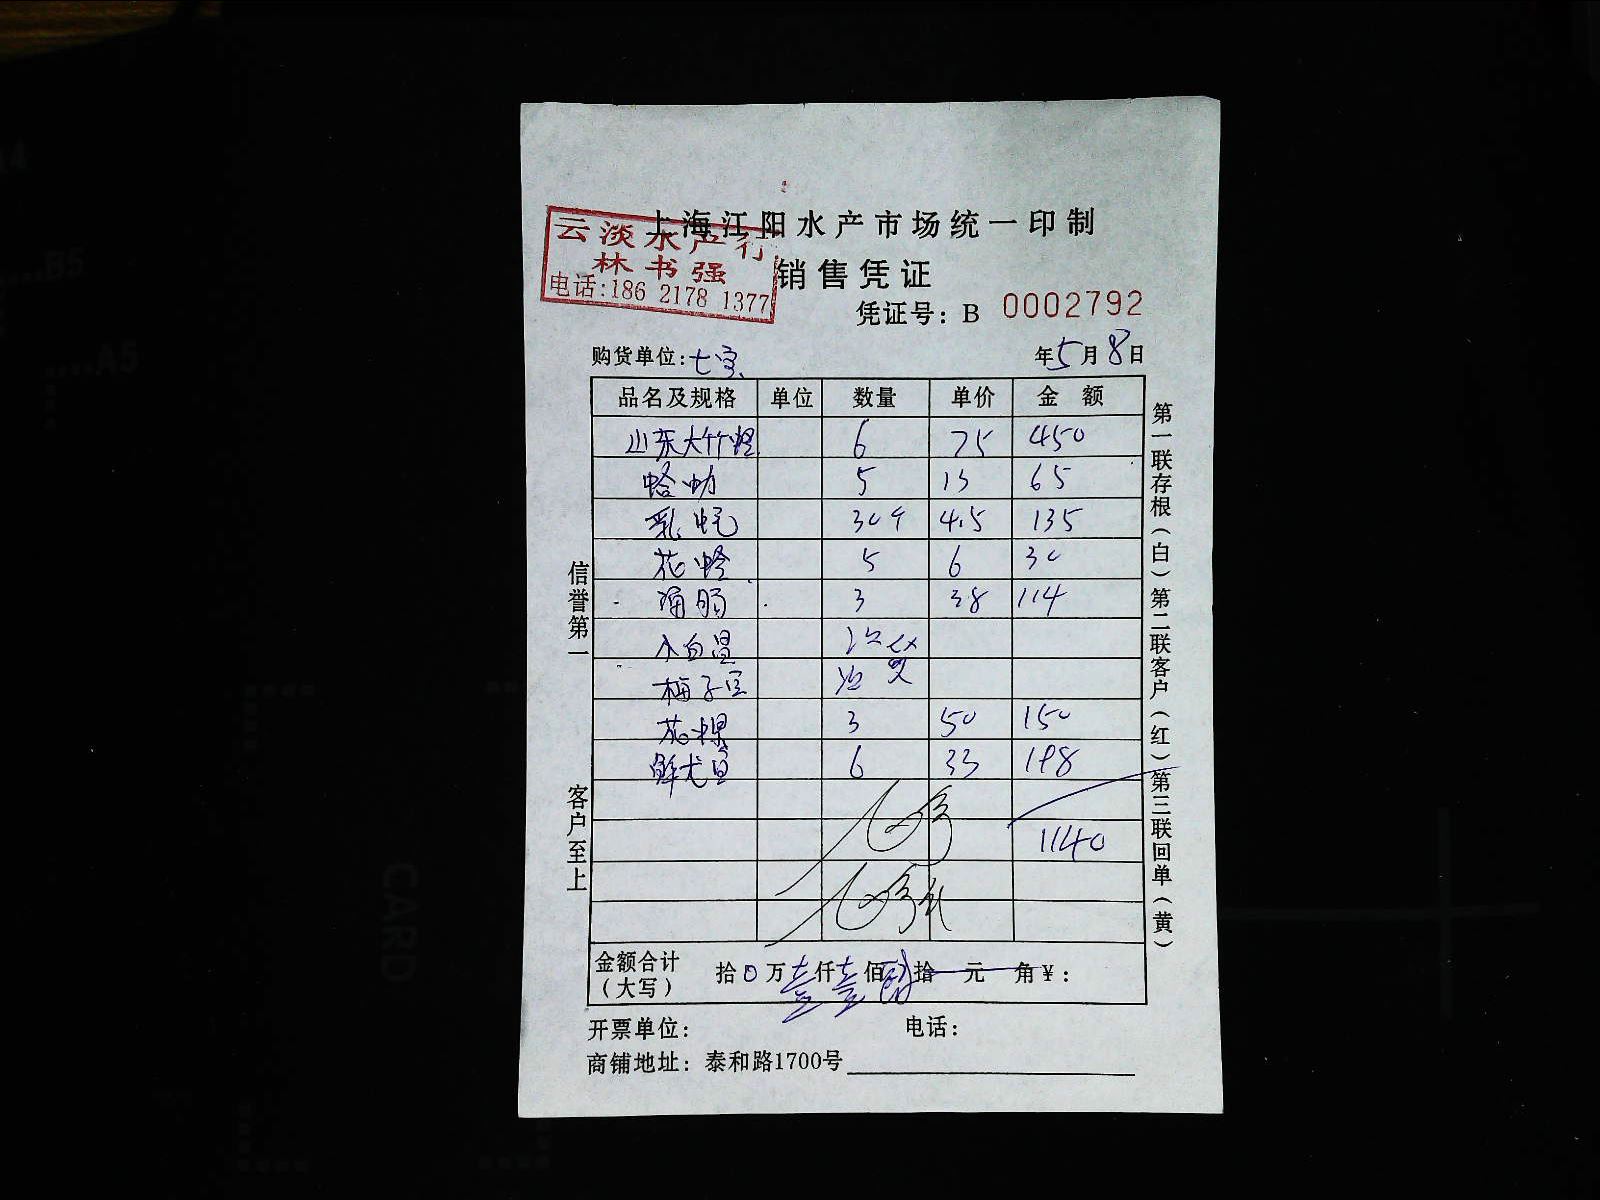 上海江阳水产市场统一印制
云淡水产行
林书强
电话:186 2178 1377
销售凭证
凭证号: B 0002792
购货单位: 七宝 年5月8日
品名及规格 单位 数量 单价 金 额
山东大竹蛏 6 75 450
蛤 5 13 65
乳 30个 4.5 135
花蛤 5 6 30
3 38 114
小白
梅子
花螺 3 50 150
鲜尤鱼 6 33 198
1140
金额合计(大写) 拾0万壹仟壹佰肆拾元 角¥:
开票单位: 电话:
商铺地址: 泰和路1700号
信誉第一
客户至上
第一联存根(白)第二联客户(红)第三联回单(黄)
A4
B5
A5
CARD